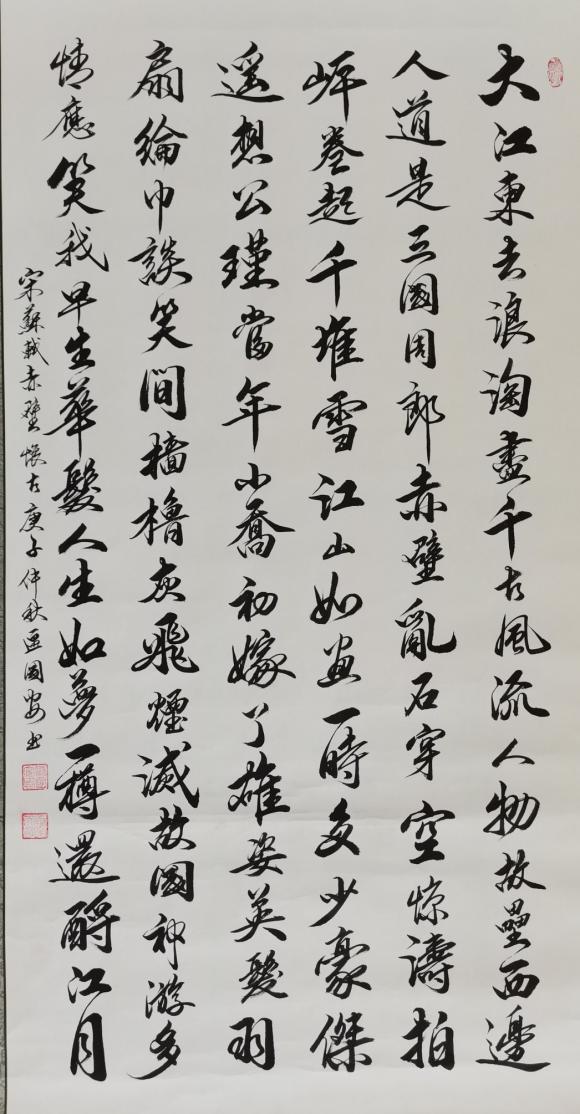 大江東去浪淘盡千古風流人物故壘西邊
人道是三國周郎赤壁亂石穿空惊濤拍
岸卷起千堆雪江山如畫一時多少豪傑
遥想公瑾當年小喬初嫁了雄姿英發羽
扇綸巾談笑間檣櫓灰飛煙滅故國神游多
情應笑我早生華髮人生如夢一樽還酹江月
宋蘇軾赤壁懷古庚子仲秋區國安书